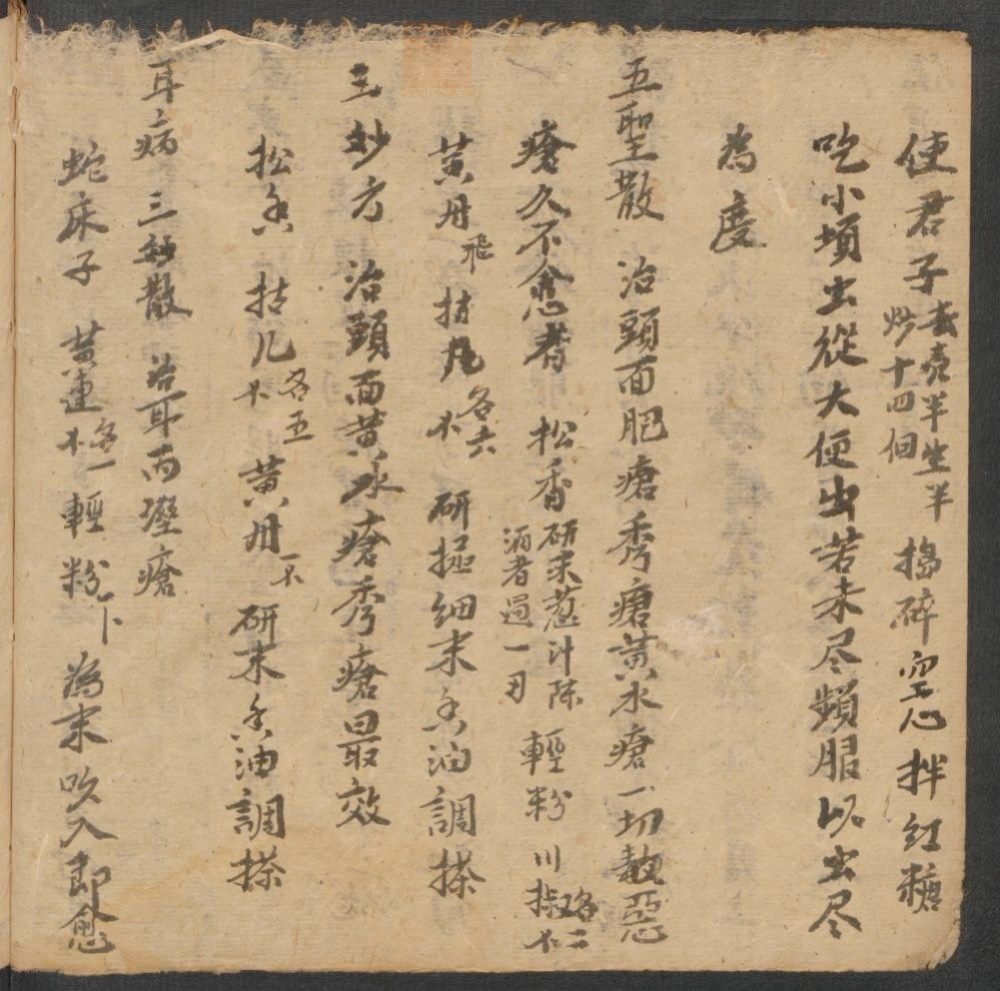 使君子去壳半生半炒十四個 搗碎空心拌红糖
吃小頃虫從大便出若未尽頻服以虫尽
為度
五聖散 治頭面肥瘡秀瘡黄水瘡一切熱惡
瘡久不愈者 松香研末葱汁陈酒煮過一刃 輕粉 川椒各二
黄丹飛 枯凡各六 研極細末香油調搽
三妙方 治頭面黄水瘡秀瘡最效
松香 枯凡各五 黄丹一 研末香油調搽
耳病 三妙散 治耳内溼瘡
蛇床子 黄連各一 輕粉 為末吹入即愈